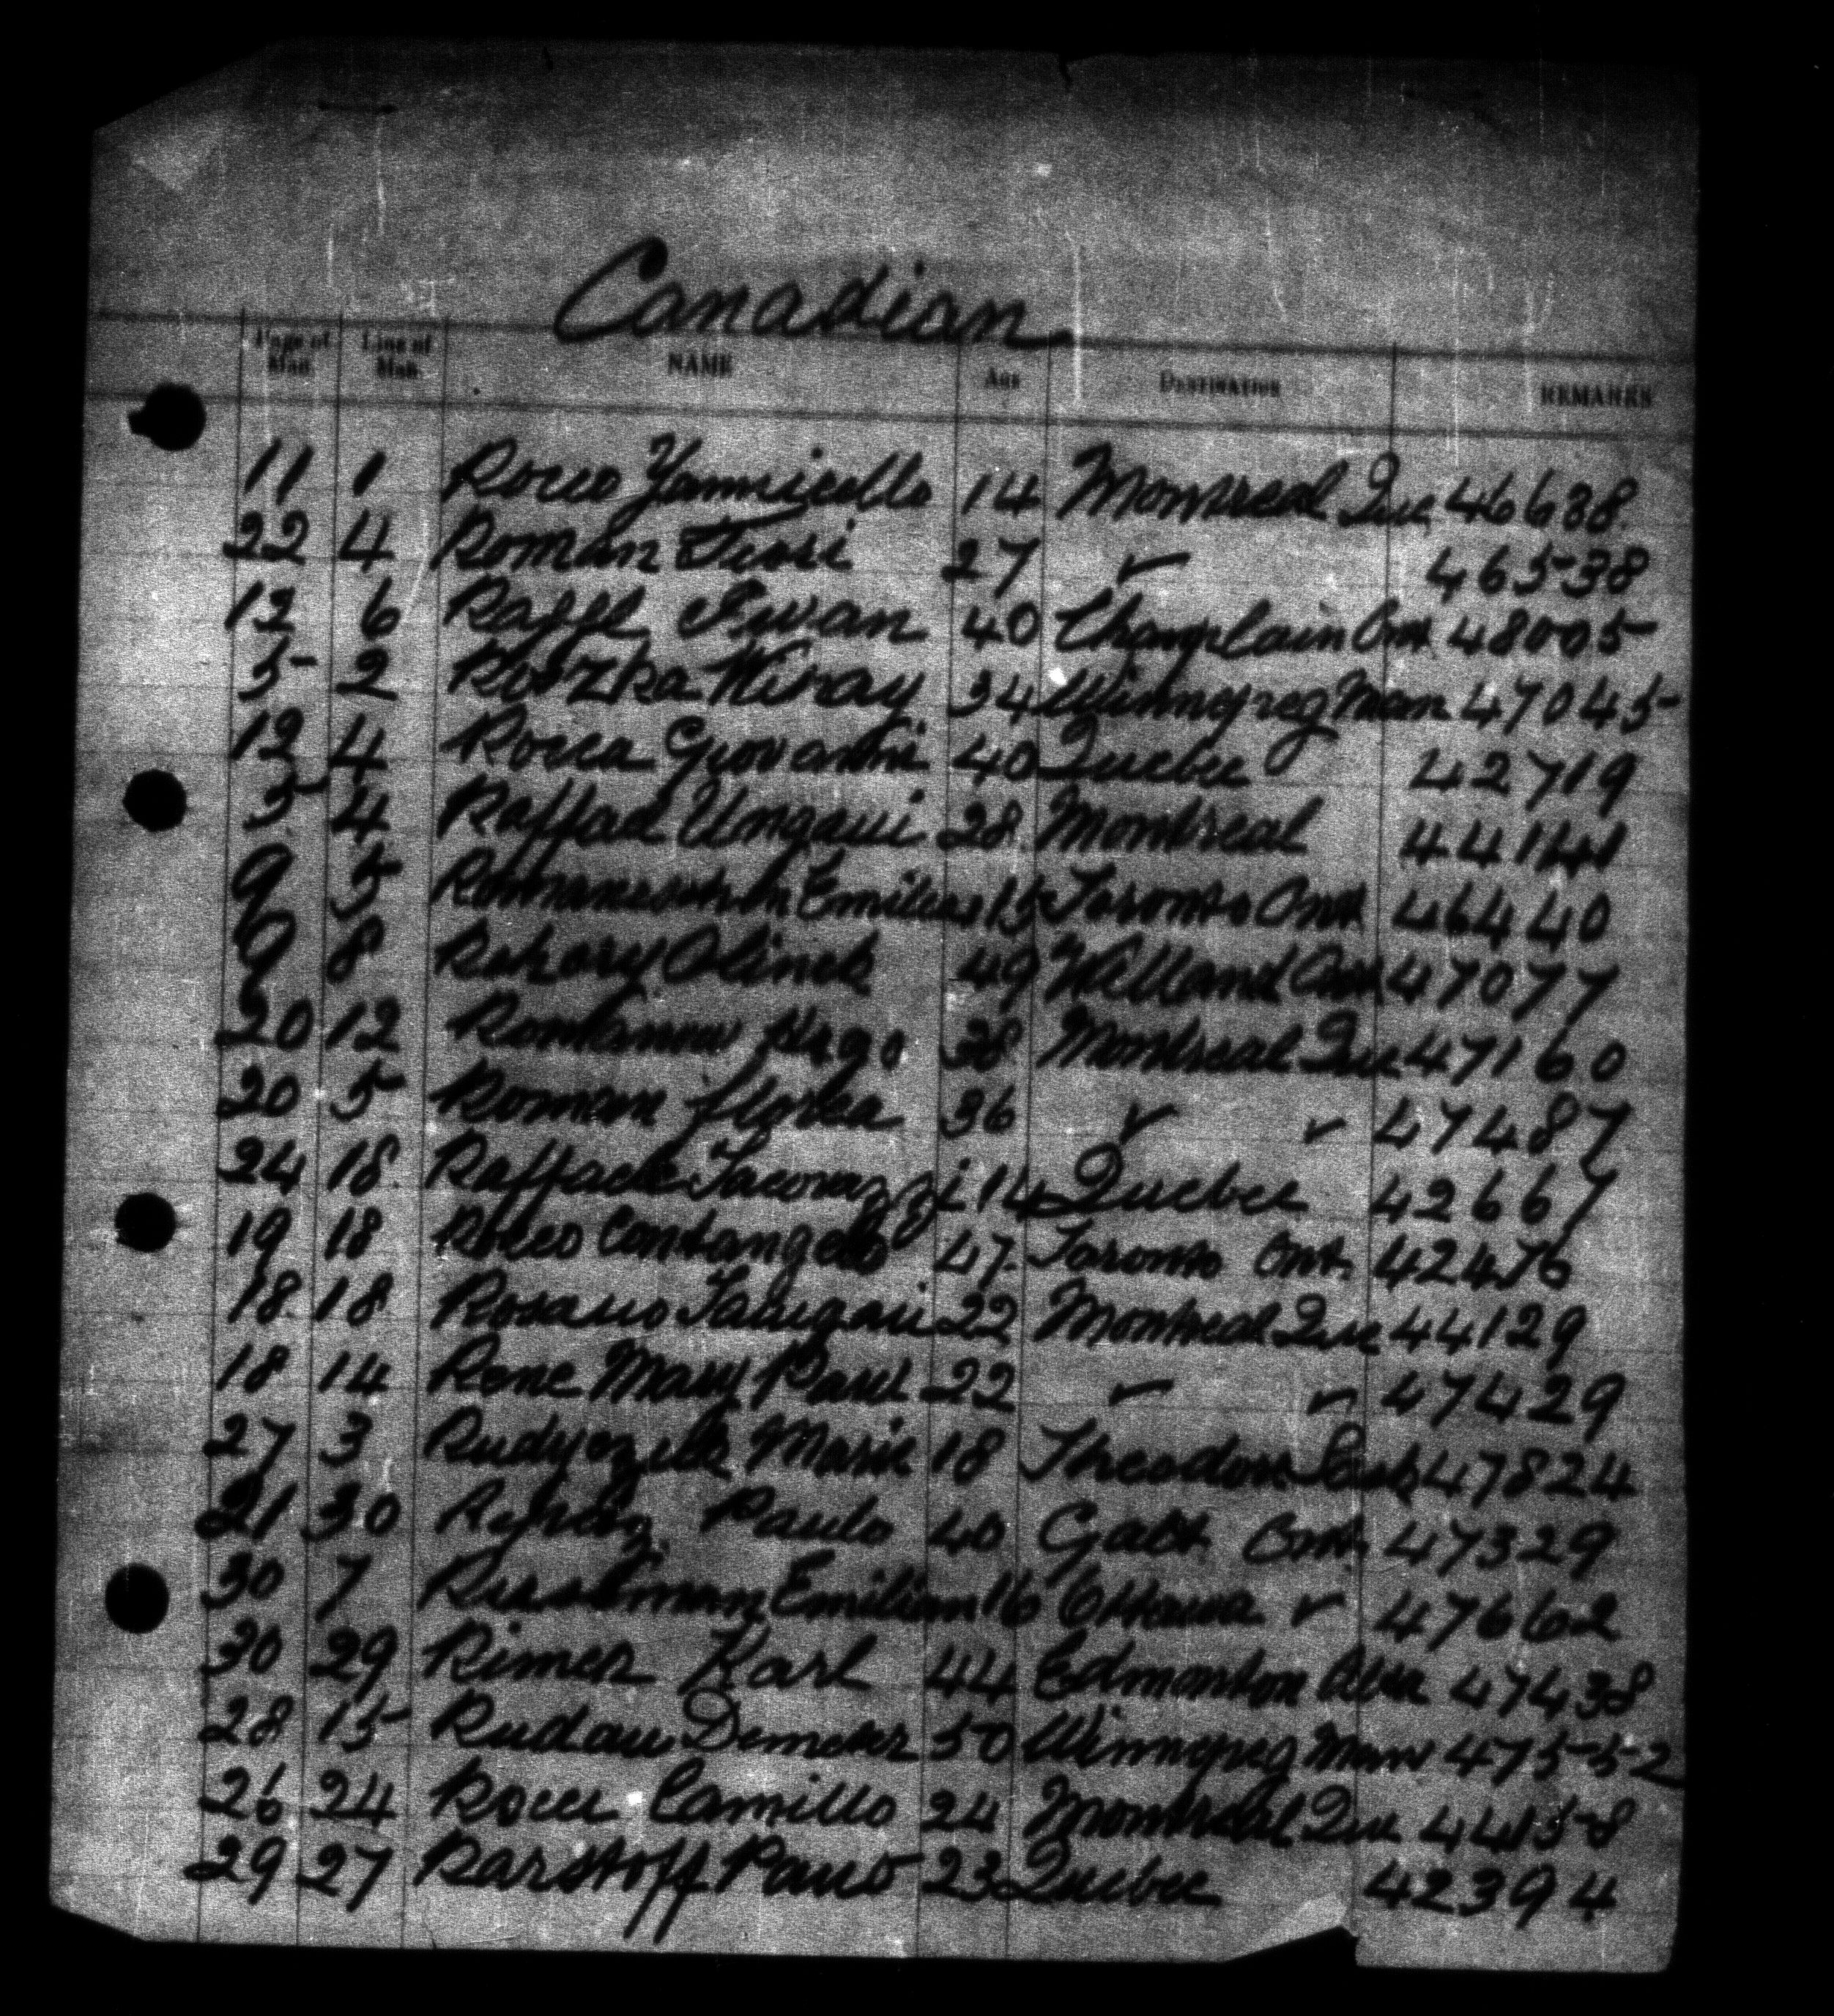 Canadian
Page of Man. Line of Man. NAME Age DESTINATION REMARKS
11 1 Rocco Yannicello 14 Montreal Que 46638
22 4 Roman 27 ✓ 46538
12 6 Iwan 40 Champlain Ont 48005
5 2 Roszka Wiray 34 Winnepeg Man 47045
12 4 Rocca Giovanni 40 Quebec 42719
5 4 Raffael Ungaui 28 Montreal 44141
9 5 15 Toronto Ont 46440
9 8 Olinek 49 Welland Ont 47077
20 12 38 Montreal Que 47160
20 5 Roman florea 36 ✓ ✓ 47487
24 18 Raffaele 14 Quebec 42667
19 18 Rocco Contangelo 47 Toronto Ont. 42476
18 18 22 Montreal Que 44129
18 14 Rene Mary Paul 22 ✓ ✓ 47429
27 3 Marie 18 Theodore Sask 47824
21 30 Paulo 40 Galt Ont. 47329
30 7 16 Ottawa ✓ 47662
30 29 Rimer Karl 44 Edmonton Alta 47438
28 15 Rudau Demeter 50 Winnepeg Man 47552
26 24 Camillo 24 Montreal Que 44158
29 27 Karstoff Paulo 23 Quebec 42394